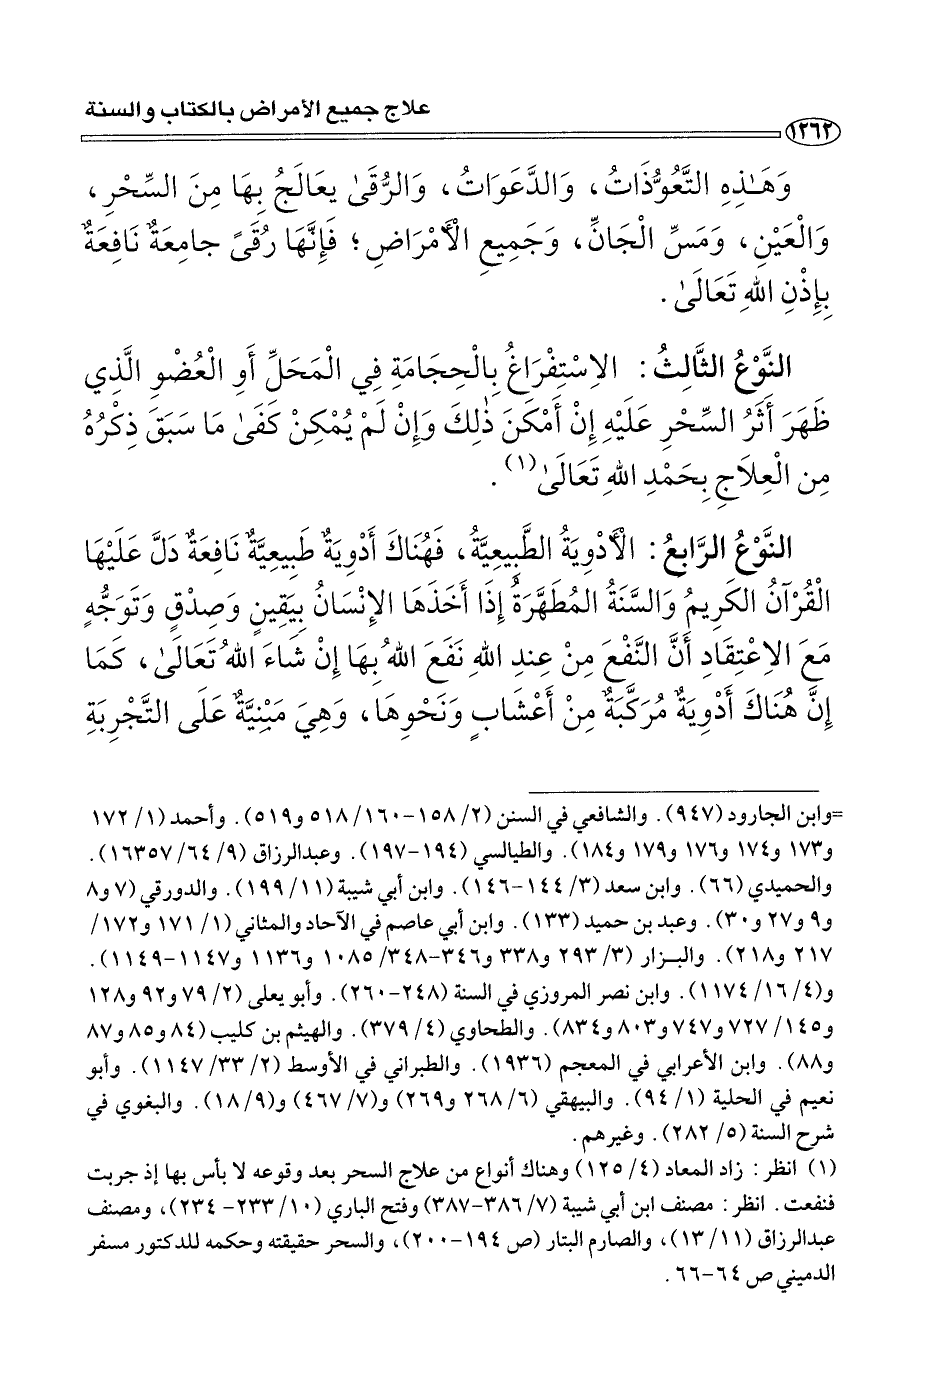 علاج جميع الأمراض بالكتاب والسنة
١٢٦٢
وَهَـٰذِهِ التَّعَوُّذَاتُ، وَالدَّعَوَاتُ، وَالرُّقَىٰ يعَالَجُ بِهَا مِنَ السِّحْرِ،
وَالْعَيْنِ، وَمَسِّ الْجَانِّ، وَجَمِيعِ الْأَمْرَاضِ؛ فَإِنَّهَا رُقَىً جامِعَةٌ نَافِعَةٌ
بِإِذْنِ اللهِ تَعَالَىٰ.
النَّوْعُ الثَّالِثُ: الاِسْتِفْرَاغُ بِالْحِجَامَةِ فِي الْمَحَلِّ أَوِ الْعُضْوِ الَّذِي
ظَهَرَ أَثَرُ السِّحْرِ عَلَيْهِ إِنْ أَمْكَنَ ذٰلِكَ وَإِنْ لَمْ يُمْكِنْ كَفَىٰ مَا سَبَقَ ذِكْرُهُ
مِن الْعِلاَجِ بِحَمْدِ اللهِ تَعَالَىٰ(١).
النَّوْعُ الرَّابعُ: الْأَدْوِيَةُ الطَّبِيعِيَّةُ، فَهُنَاكَ أَدْوِيَةٌ طَبِيعِيَّةٌ نَافِعَةٌ دَلَّ عَلَيْهَا
الْقُرْآنُ الكَرِيمُ وَالسَّنَةُ المُطَهَّرَةُ إِذَا أَخَذَهَا الإِنْسَانُ بِيَقِينٍ وَصِدْقٍ وَتَوَجُّهٍ
مَعَ الاِعْتِقَادِ أَنَّ النَّفْعَ مِنْ عِندِ اللهِ نَفَعَ اللهُ بِهَا إِنْ شَاءَ اللهُ تَعَالَىٰ، كَمَا
إِنَّ هُنَاكَ أَدْوِيَةٌ مُرَكَّبَةٌ مِنْ أَعْشَابٍ وَنَحْوِهَا، وَهِيَ مَبْنِيَّةٌ عَلَى التَّجْرِبَةِ
=وابن الجارود (٩٤٧). والشافعي في السنن (٢/ ١٥٨-١٦٠/ ٥١٨ و٥١٩). وأحمد (١/ ١٧٢
و١٧٣ و١٧٤ و١٧٦ و١٧٩ و١٨٤). والطيالسي (١٩٤-١٩٧). وعبدالرزاق (٩/ ٦٤/ ١٦٣٥٧).
والحميدي (٦٦). وابن سعد (٣/ ١٤٤-١٤٦). وابن أبي شيبة (١١/ ١٩٩). والدورقي (٧ و٨
و٩ و٢٧ و٣٠). وعبد بن حميد (١٣٣). وابن أبي عاصم في الآحاد والمثاني (١/ ١٧١ و١٧٢/
٢١٧ و٢١٨). والبـزار (٣/ ٢٩٣ و٣٣٨ و٣٤٦-٣٤٨/ ١٠٨٥ و١١٣٦ و١١٤٧-١١٤٩).
و(٤/ ١٦/ ١١٧٤). وابن نصر المروزي في السنة (٢٤٨-٢٦٠). وأبو يعلى (٢/ ٧٩ و٩٢ و١٢٨
و١٤٥/ ٧٢٧ و٧٤٧ و٨٠٣ و٨٣٤). والطحاوي (٤/ ٣٧٩). والهيثم بن كليب (٨٤ و٨٥ و٨٧
و٨٨). وابن الأعرابي في المعجم (١٩٣٦). والطبراني في الأوسط (٢/ ٣٣/ ١١٤٧). وأبو
نعيم في الحلية (١/ ٩٤). والبيهقي (٦/ ٢٦٨ و٢٦٩) و(٧/ ٤٦٧) و(٩/ ١٨). والبغوي في
شرح السنة (٥/ ٢٨٢). وغيرهم.
(١) انظر: زاد المعاد (٤/ ١٢٥) وهناك أنواع من علاج السحر بعد وقوعه لا بأس بها إذ جربت
فنفعت. انظر: مصنف ابن أبي شيبة (٧/ ٣٨٦-٣٨٧) وفتح الباري (١٠/ ٢٣٣- ٢٣٤)، ومصنف
عبدالرزاق (١١/ ١٣)، والصارم البتار (ص ١٩٤-٢٠٠)، والسحر حقيقته وحكمه للدكتور مسفر
الدميني ص ٦٤-٦٦.